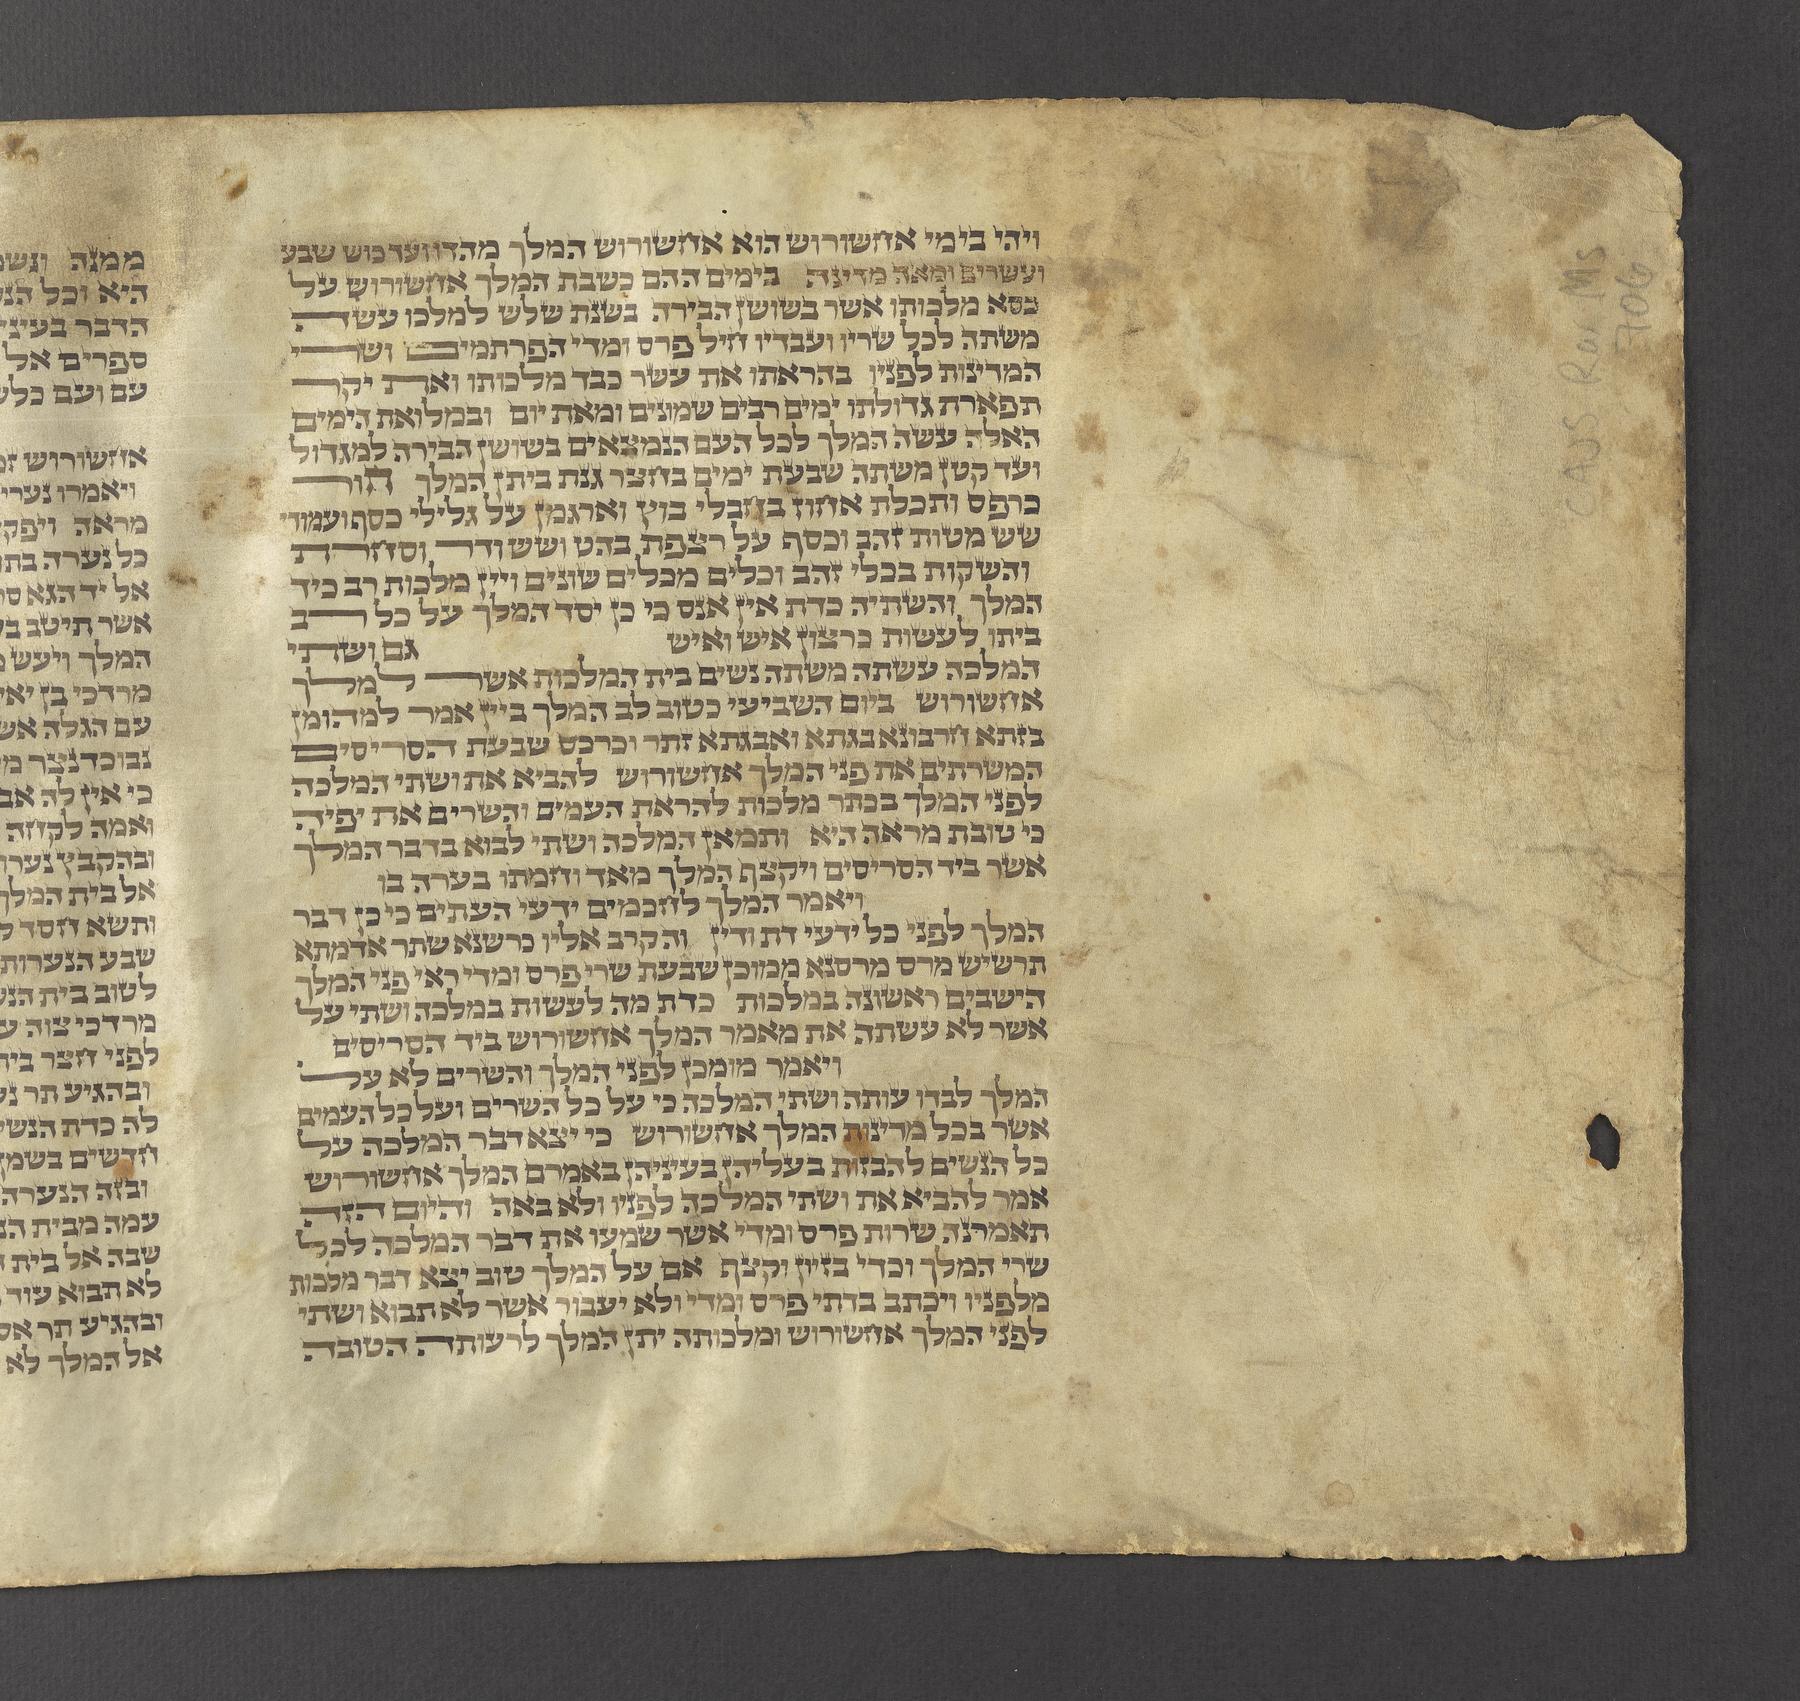 ויהי בימי אחשורוש הוא אחשורוש המלך מהדו ועד כוש שבע
ועשרים ומאה מדינה בימים ההם כשבת המלך אחשורוש על
כסא מלכותו אשר בשושן הבירה בשנת שלש למלכו עשה
משתה לכל שריו ועבדיו חיל פרס ומדי הפרתמים ושרי
המדינות לפניו בהראתו את עשר כבד מלכותו ואת יקר
תפארת גדולתו ימים רבים שמונים ומאת יום ובמלואת הימים
האלה עשה המלך לכל העם הנמצאים בשושן הבירה למגדול
ועד קטן משתה שבעת ימים בחצר גנת ביתן המלך חור
כרפס ותכלת אחוז בחבלי בוץ וארגמן על גלילי כסף ועמודי
שש מטות זהב וכסף על רצפת בהט ושש ודר וסחרת
והשקות בכלי זהב וכלים מכלים שונים ויין מלכות רב כיד
המלך והשתיה כדת אין אנס כי כן יסד המלך על כל רב
ביתו לעשות כרצון איש ואיש גם ושתי
המלכה עשתה משתה נשים בית המלכות אשר למלך
אחשורוש ביום השביעי כטוב לב המלך ביין אמר למהומן
בזתא חרבונא בגתא ואבגתא זתר וכרכס שבעת הסריסים
המשרתים את פני המלך אחשורוש להביא את ושתי המלכה
לפני המלך בכתר מלכות להראת העמים והשרים את יפיה
כי טובת מראה היא ותמאן המלכה ושתי לבוא בדבר המלך
אשר ביד הסריסים ויקצף המלך מאד וחמתו בערה בו
ויאמר המלך לחכמים ידעי העתים כי כן דבר
המלך לפני כל ידעי דת ודין והקרב אליו כרשנא שתר אדמתא
תרשיש מרס מרסנא ממוכן שבעת שרי פרס ומדי ראי פני המלך
הישבים ראשונה במלכות כדת מה לעשות במלכה ושתי על
אשר לא עשתה את מאמר המלך אחשורוש ביד הסריסים
ויאמר מומכן לפני המלך והשרים לא על
המלך לבדו עותה ושתי המלכה כי על כל השרים ועל כל העמים
אשר בכל מדינות המלך אחשורוש כי יצא דבר המלכה על
כל הנשים להבזות בעליהן בעיניהן באמרם המלך אחשורוש
אמר להביא את ושתי המלכה לפניו ולא באה והיום הזה
תאמרנה שרות פרס ומדי אשר שמעו את דבר המלכה לכל
שרי המלך וכדי בזיון וקצף אם על המלך טוב יצא דבר מלכות
מלפניו ויכתב בדתי פרס ומדי ולא יעבור אשר לא תבוא ושתי
לפני המלך אחשורוש ומלכותה יתן המלך לרעותה הטובה
ממנה
היא וכל
הדבר בעיני
ספרים אל
עם ועם
אחשורוש
ויאמרו נערי
מראה
כל נערה
אל יד הגא
אשר תיטב
המלך ויעש
מרדכי בן יאיר
עם הגלה
נבוכדנצר
כי אין לה אב
ואמה לקחה
ובהקבץ
אל בית המלך
ותשא חסד
שבע הנערות
לטוב בית
מרדכי צוה
לפני חצר בית
ובהגיע תר
לה כדת
חדשים בשמן
ובזה הנערה
עמה מבית
שבה אל בית
לא תבוא עוד
ובהגיע תר
אל המלך לא
CAJS Rar MS
706